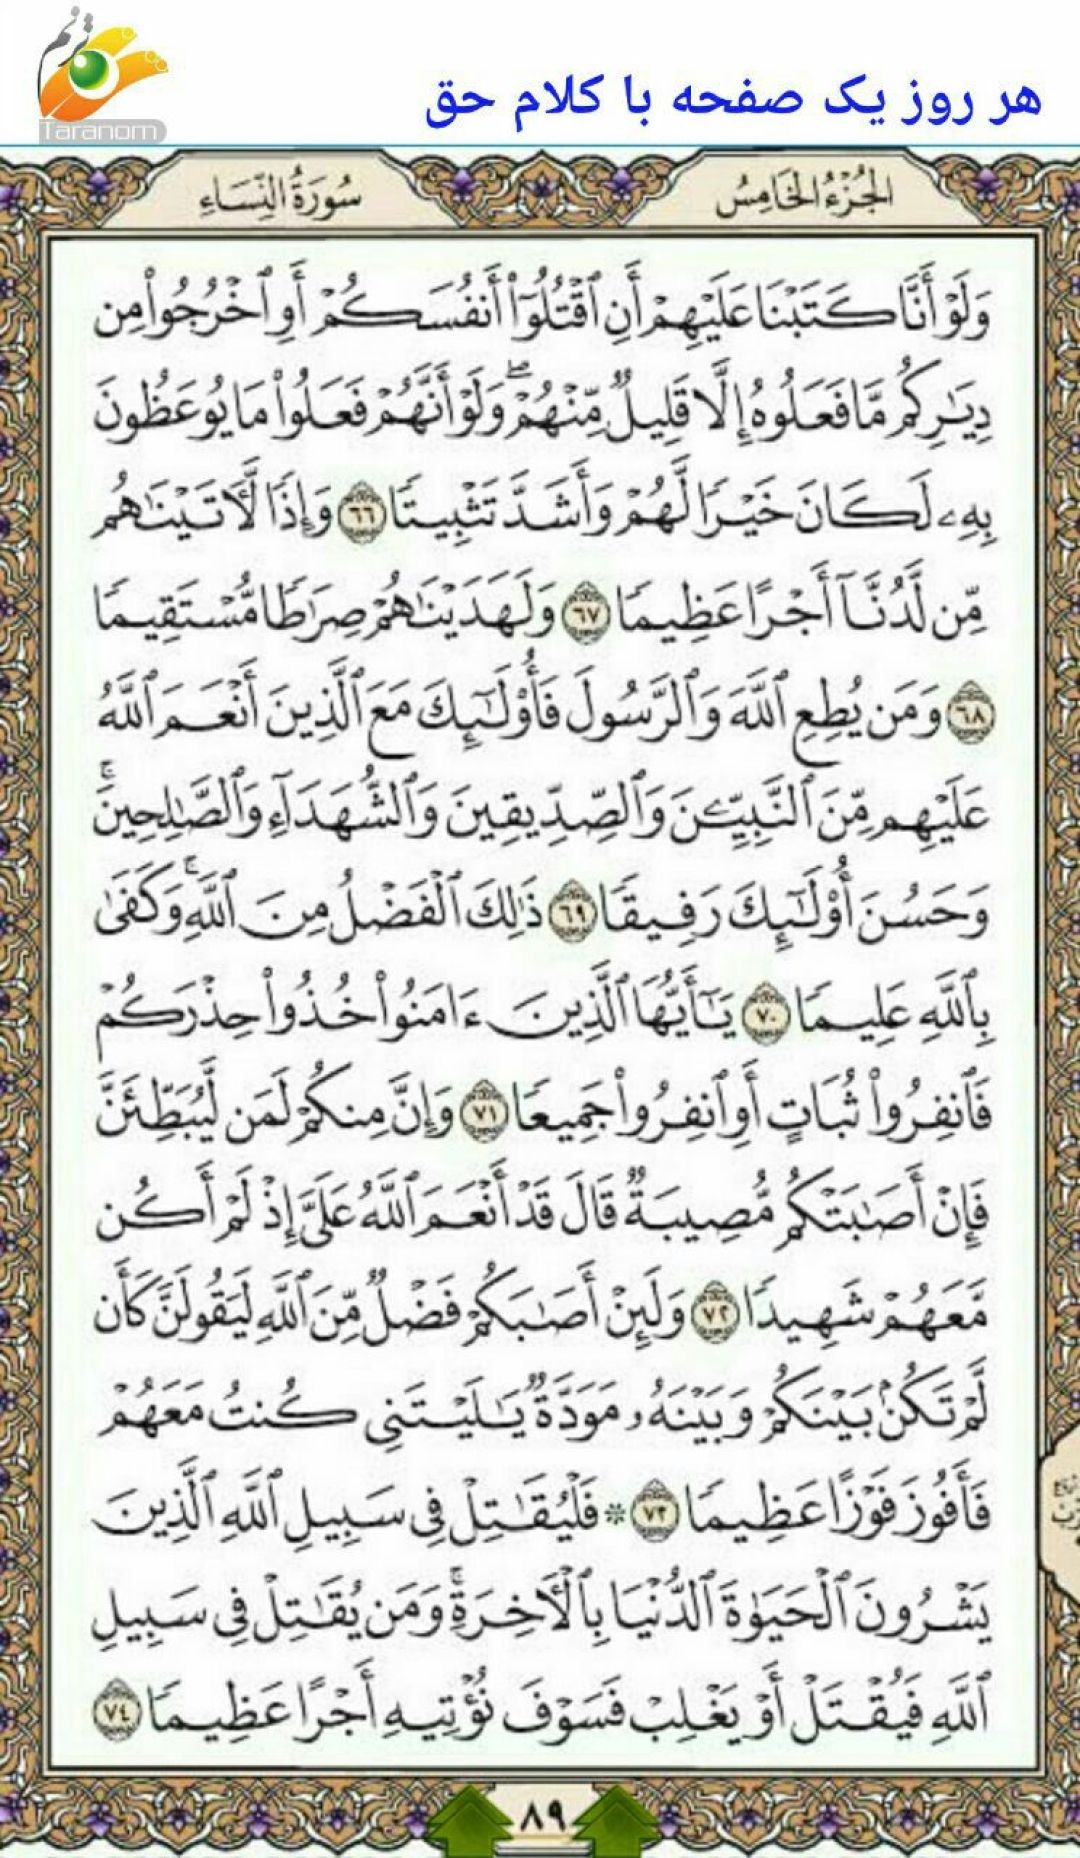 ترنم
Taranom
هر روز یک صفحه با کلام حق
الجُزْءُ الخَامِسُ
سُورَةُ النِّسَاءِ
وَلَوْ أَنَّا كَتَبْنَا عَلَيْهِمْ أَنِ ٱقْتُلُوٓا۟ أَنفُسَكُمْ أَوِ ٱخْرُجُوا۟ مِن
دِيَٰرِكُم مَّا فَعَلُوهُ إِلَّا قَلِيلٌ مِّنْهُمْ ۖ وَلَوْ أَنَّهُمْ فَعَلُوا۟ مَا يُوعَظُونَ
بِهِۦ لَكَانَ خَيْرًا لَّهُمْ وَأَشَدَّ تَثْبِيتًا ٦٦ وَإِذًا لَّـَٔاتَيْنَٰهُم
مِّن لَّدُنَّآ أَجْرًا عَظِيمًا ٦٧ وَلَهَدَيْنَٰهُمْ صِرَٰطًا مُّسْتَقِيمًا
٦٨ وَمَن يُطِعِ ٱللَّهَ وَٱلرَّسُولَ فَأُو۟لَٰٓئِكَ مَعَ ٱلَّذِينَ أَنْعَمَ ٱللَّهُ
عَلَيْهِم مِّنَ ٱلنَّبِيِّـۧنَ وَٱلصِّدِّيقِينَ وَٱلشُّهَدَآءِ وَٱلصَّٰلِحِينَ ۚ
وَحَسُنَ أُو۟لَٰٓئِكَ رَفِيقًا ٦٩ ذَٰلِكَ ٱلْفَضْلُ مِنَ ٱللَّهِ ۚ وَكَفَىٰ
بِٱللَّهِ عَلِيمًا ٧٠ يَٰٓأَيُّهَا ٱلَّذِينَ ءَامَنُوا۟ خُذُوا۟ حِذْرَكُمْ
فَٱنفِرُوا۟ ثُبَاتٍ أَوِ ٱنفِرُوا۟ جَمِيعًا ٧١ وَإِنَّ مِنكُمْ لَمَن لَّيُبَطِّئَنَّ
فَإِنْ أَصَٰبَتْكُم مُّصِيبَةٌ قَالَ قَدْ أَنْعَمَ ٱللَّهُ عَلَىَّ إِذْ لَمْ أَكُن
مَّعَهُمْ شَهِيدًا ٧٢ وَلَئِنْ أَصَٰبَكُمْ فَضْلٌ مِّنَ ٱللَّهِ لَيَقُولَنَّ كَأَن
لَّمْ تَكُنۢ بَيْنَكُمْ وَبَيْنَهُۥ مَوَدَّةٌ يَٰلَيْتَنِى كُنتُ مَعَهُمْ
فَأَفُوزَ فَوْزًا عَظِيمًا ٧٣ * فَلْيُقَٰتِلْ فِى سَبِيلِ ٱللَّهِ ٱلَّذِينَ
يَشْرُونَ ٱلْحَيَوٰةَ ٱلدُّنْيَا بِٱلْـَٔاخِرَةِ ۚ وَمَن يُقَٰتِلْ فِى سَبِيلِ
ٱللَّهِ فَيُقْتَلْ أَوْ يَغْلِبْ فَسَوْفَ نُؤْتِيهِ أَجْرًا عَظِيمًا ٧٤
٨٩